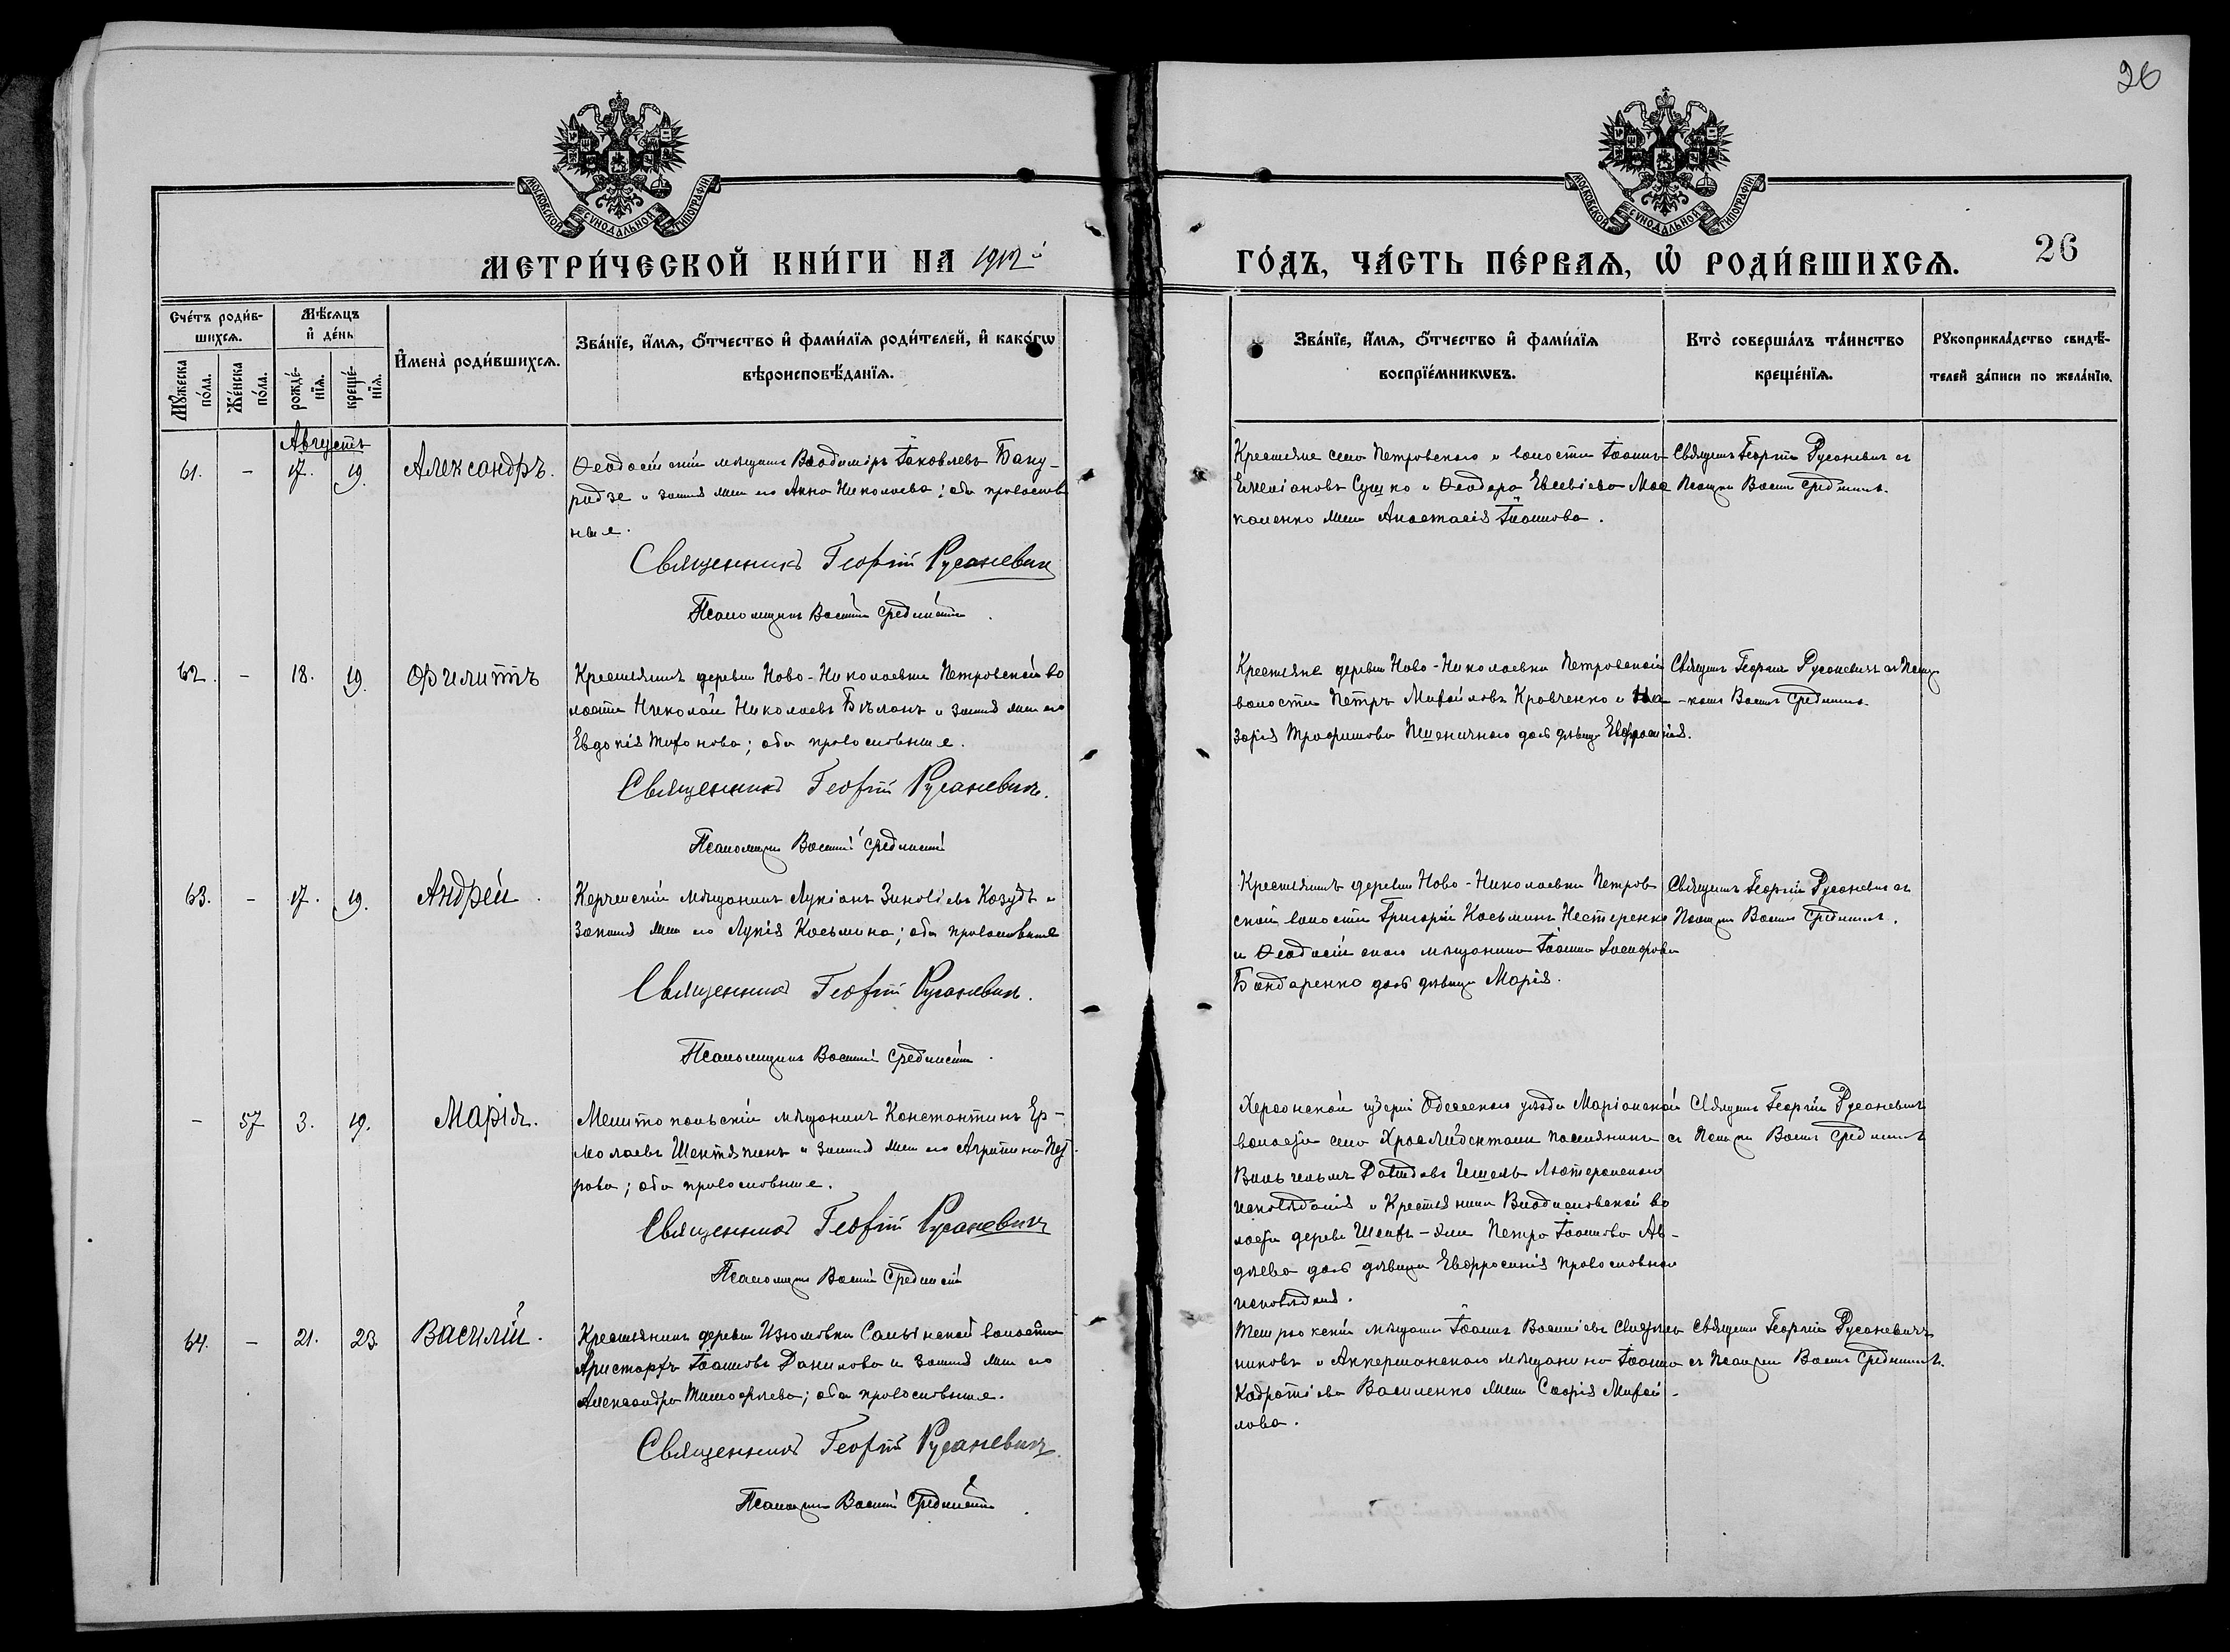 26
МОСКОВСКОЙ СѴНОДАЛЬНОЙ ТИПОГРАФІИ
МОСКОВСКОЙ СѴНОДАЛЬНОЙ ТИПОГРАФІИ
МЕТРИ́ЧЕСКОЙ КНИ́ГИ НА 1912й
ГО́ДЪ, ЧА́СТЬ ПЕ́РВАѦ, Ѡ҆ РОДИ́ВШИХСѦ.
26
Сче́тъ роди́в-
шихсѧ.
Мꙋ́жеска по́ла.
Же́нска по́ла.
Мѣ́сѧцъ
и҆ де́нь
рожде́-
нїѧ.
креще́-
нїѧ.
И҆мена̀ роди́вшихсѧ.
Зва́нїе, и҆́мѧ, ѻ҆́тчество и҆ фами́лїѧ роди́телей, и҆ како́гѡ
вѣроисповѣ́данїѧ.
Зва́нїе, и҆́мѧ, ѻ҆́тчество и҆ фами́лїѧ
воспрїе́мникѡвъ.
Кто̀ соверша́лъ та́инство
креще́нїѧ.
Рꙋкоприкла́дство свидѣ́-
телей за́писи по жела́нїю.
Августъ
61. - 17. 19. Александръ.
Ѳеодосійскій мѣщанинъ Владиміръ Іаковлевъ Бану-
ридзе и законная жена его Анна Николаева; оба православ
ные.
Священникъ Георгій Русаневичъ
Псаломщикъ Василій Среднискій
Крестьяне села Петровскаго и волости Іоаннъ
Емеліановъ Сушко и Ѳеодора Евсевіева Мос
каленко жена Анастасія Іоаннова.
Священ. Георгій Русаневичъ съ
Псаломщ. Васил.
62. - 18. 19. Филиппъ
Крестьянинъ деревни Ново-Николаевки Петровской во
лости Николай Николаевъ Бѣланъ и законная жена его
Евдокія Тихонова; оба православные.
Священникъ Георгій Русаневичъ.
Псаломщикъ Василій Среднискій
Крестьяне деревни Ново-Николаевки Петровской
волости Петръ Михайловъ Кравченко и На
зарія Трофимова Пшеничнаго дочь дѣвица Евфросинія.
Священ. Георгій Русаневичъ съ Псаломщ
-комъ Васил.
63. - 17. 19. Андрей.
Керченскій мѣщанинъ Лукіанъ Зиновіевъ Козубъ и
законная жена его Лукія Косьмина; оба православные
Священникъ Георгій Русаневичъ.
Псаломщикъ Василій Среднискій.
Крестьянинъ деревни Ново-Николаевки Петров
ской волости Григорій Косьминъ Нестеренко
и Ѳеодосійскаго мѣщанина Іоанна Іосифова
Бондаренко дочь дѣвица Марія.
Священ. Георгій Русаневичъ съ
Псаломщ. Васил.
- 57 3. 19. Марія.
Мелитопольскій мѣщанинъ Константинъ Ер-
молаевъ Шентяпинъ и законная жена его Агриппина Пет
рова; оба православные.
Священникъ Георгій Русаневичъ
Псаломщикъ Василій Среднискій
Херсонской губерніи Одесскаго уѣзда Маріонской
волости села поселянинъ
Вильгельмъ Давидовъ Лютеранскаго
исповѣданія и Крестьянина Владиславовской во
лости деревни Петра Іоаннова Ав-
дѣева дочь дѣвица Евфросинія православнаго
исповѣданія.
Священ. Георгій Русаневичъ
съ Псаломщ. Васил.
64. - 21. 23. Василій.
Крестьянинъ деревни Изюмовки Салынской волости
Аристархъ Іоанновъ Данилова и законная жена его
Александра Тимофѣева; оба православные.
Священникъ Георгій Русаневичъ.
Псаломщикъ Василій Среднискій.
мѣщанинъ Іоаннъ Василіевъ
никовъ и Аккерманскаго мѣщанина Іоанна
Кодратіева Василенко жена Софія Михай-
лова.
Священ. Георгій Русаневичъ
съ Псаломщ. Васил.